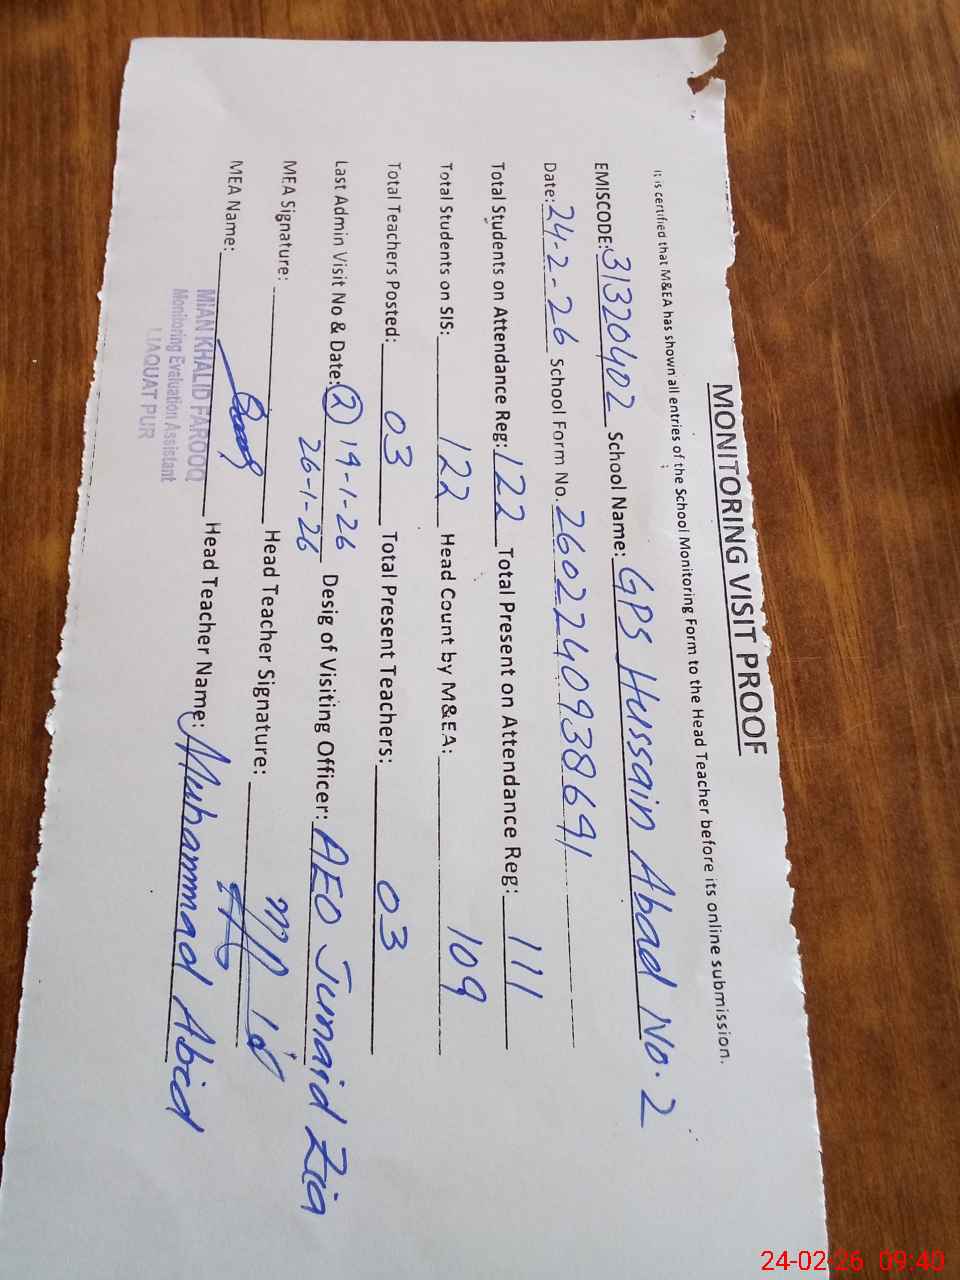 MONITORING VISIT PROOF
It is certified that M&EA has shown all entries of the School Monitoring Form to the Head Teacher before its online submission.
EMISCODE: 31320402 School Name: GPS Hussain Abad No. 2
Date: 24-2-26 School Form No. 2602240938691
Total Students on Attendance Reg: 122 Total Present on Attendance Reg: 111
Total Students on SIS: 122 Head Count by M&EA: 109
Total Teachers Posted: 03 Total Present Teachers: 03
Last Admin Visit No & Date: (2) 19-1-26 Desig of Visiting Officer: AEO Junaid Zia
26-1-26
MEA Signature: Head Teacher Signature:
MEA Name: Head Teacher Name: Muhammad Abid
MIAN KHALID FAROOQ
Monitoring Evaluation Assistant
LIAQUAT PUR
24-02-26 09:40